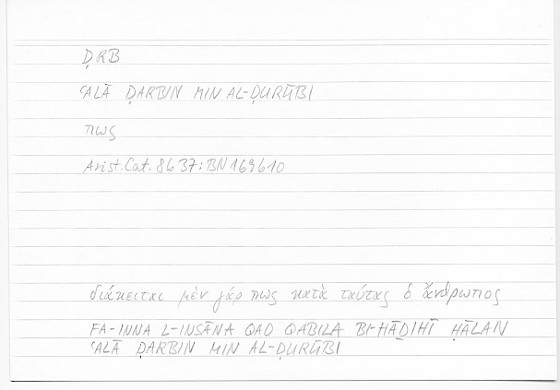 ḌRB
ʿALĀ ḌARBIN MIN AL-ḌURŪBI
πως
Arist. Cat. 8b37: BN 169b10
διάκειται μὲν γάρ πως κατὰ ταύτας ὁ ἄνθρωπος
FA-INNA L-INSĀNA QAD QABILA BI-HĀḎIHĪ ḤĀLAN
ʿALĀ ḌARBIN MIN AL-ḌURŪBI